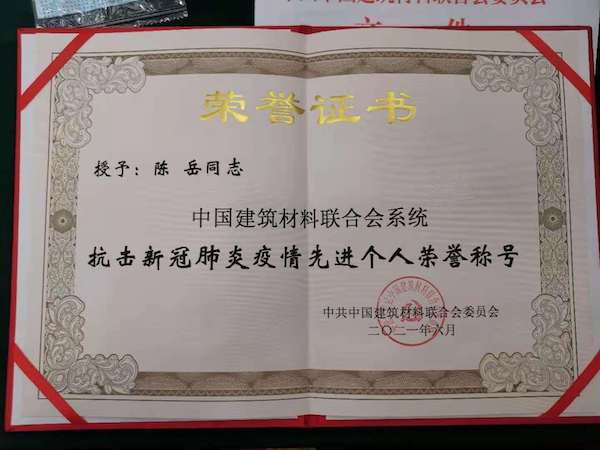 中国建筑材料联合会委员会
文 件
荣誉证书
授予：陈 岳同志
中国建筑材料联合会系统
抗击新冠肺炎疫情先进个人荣誉称号
中共中国建筑材料联合会委员会
二〇二一年六月